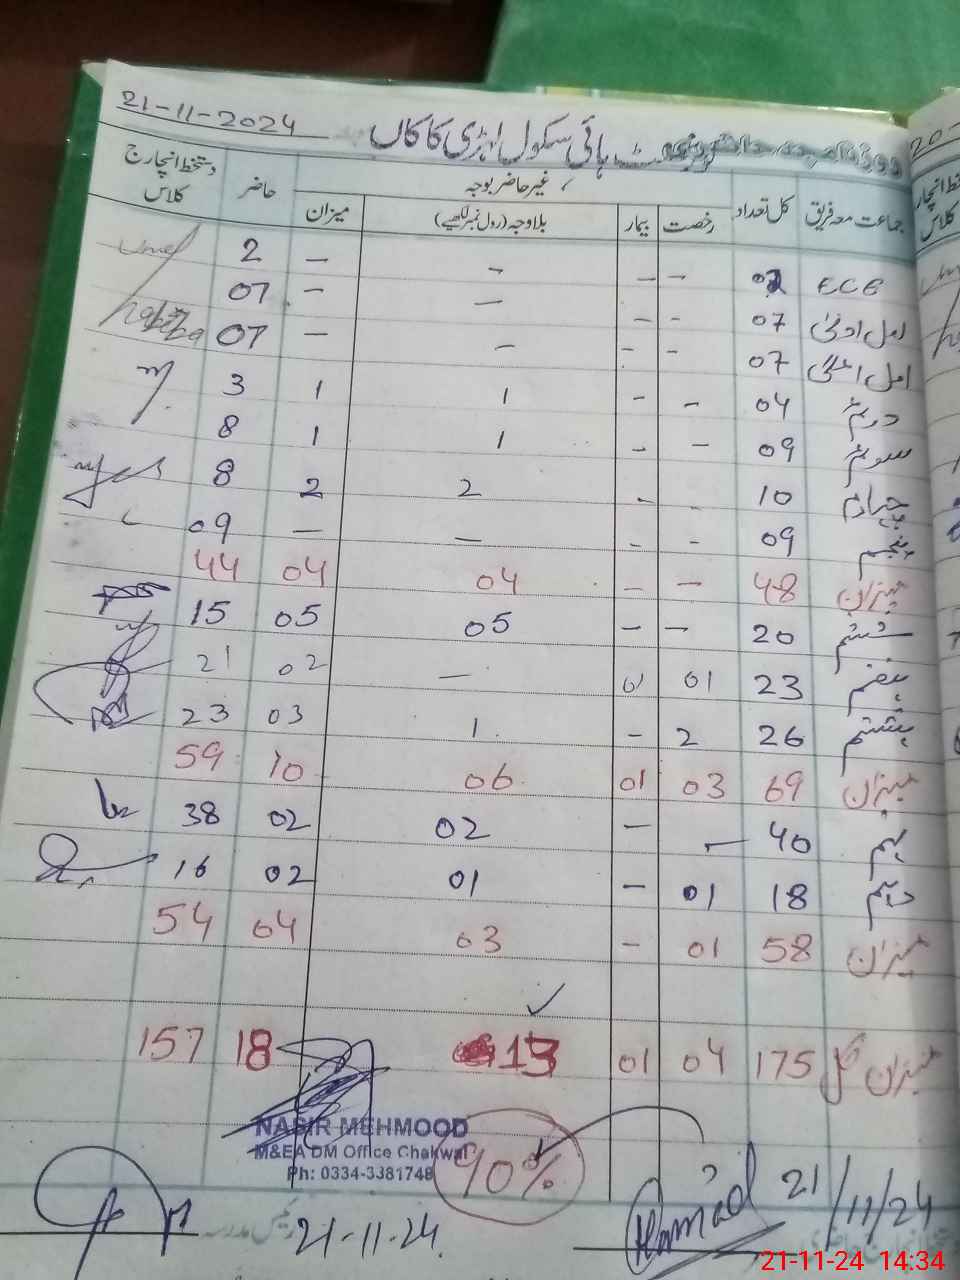 21-11-2024
ہائی سکول لہڑی کاکاں
جماعت معہ فریق کل تعداد غیر حاضر بوجہ حاضر دستخط انچارج کلاس
رخصت بیمار بلا وجہ (رول نمبر لکھیے) میزان
ECE 02 - - - - 2
امل ادنیٰ 07 - - - - 07
امل اعلیٰ 07 - - - - 07
دوئم 04 - - 1 1 3
سوئم 09 - - 1 1 8
چہارم 10 - 2 2 8
پنجم 09 - - - - 09
میزان 48 - - 04 04 44
ششم 20 - - 05 05 15
ہفتم 23 01 01 - 02 21
ہشتم 26 2 - 1 03 23
میزان 69 03 01 06 10 59
نہم 40 - - 02 02 38
دہم 18 01 - 01 02 16
میزان 58 01 - 03 04 54
میزان کل 175 04 01 13 18 157
NASIR MEHMOOD
M&EA DM Office Chakwal
Ph: 0334-3381748
90%
رئیس مدرسہ
21-11-24.
Hamad 21/11/24
20-
21-11-24 14:34